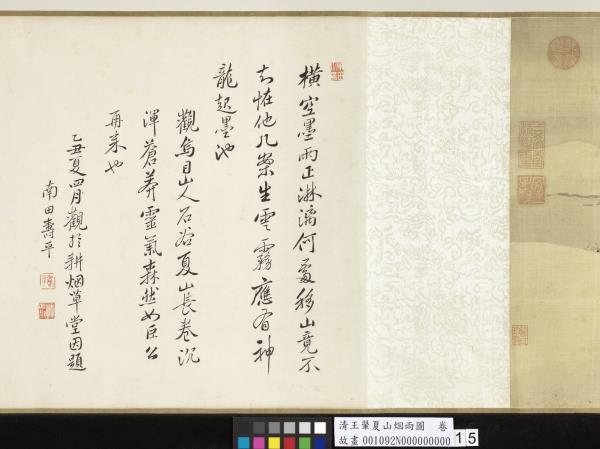 橫空墨雨正淋漓何處移山竟不
知怪他几案生雲霧應有神
龍起墨池
觀烏目山人石谷夏山長卷沉
渾蒼莽靈氣森然如巨公
再來也
乙丑夏四月觀於耕烟草堂因題
南田壽平
清王翬夏山烟雨圖 卷
故畫 001092N000000000
15